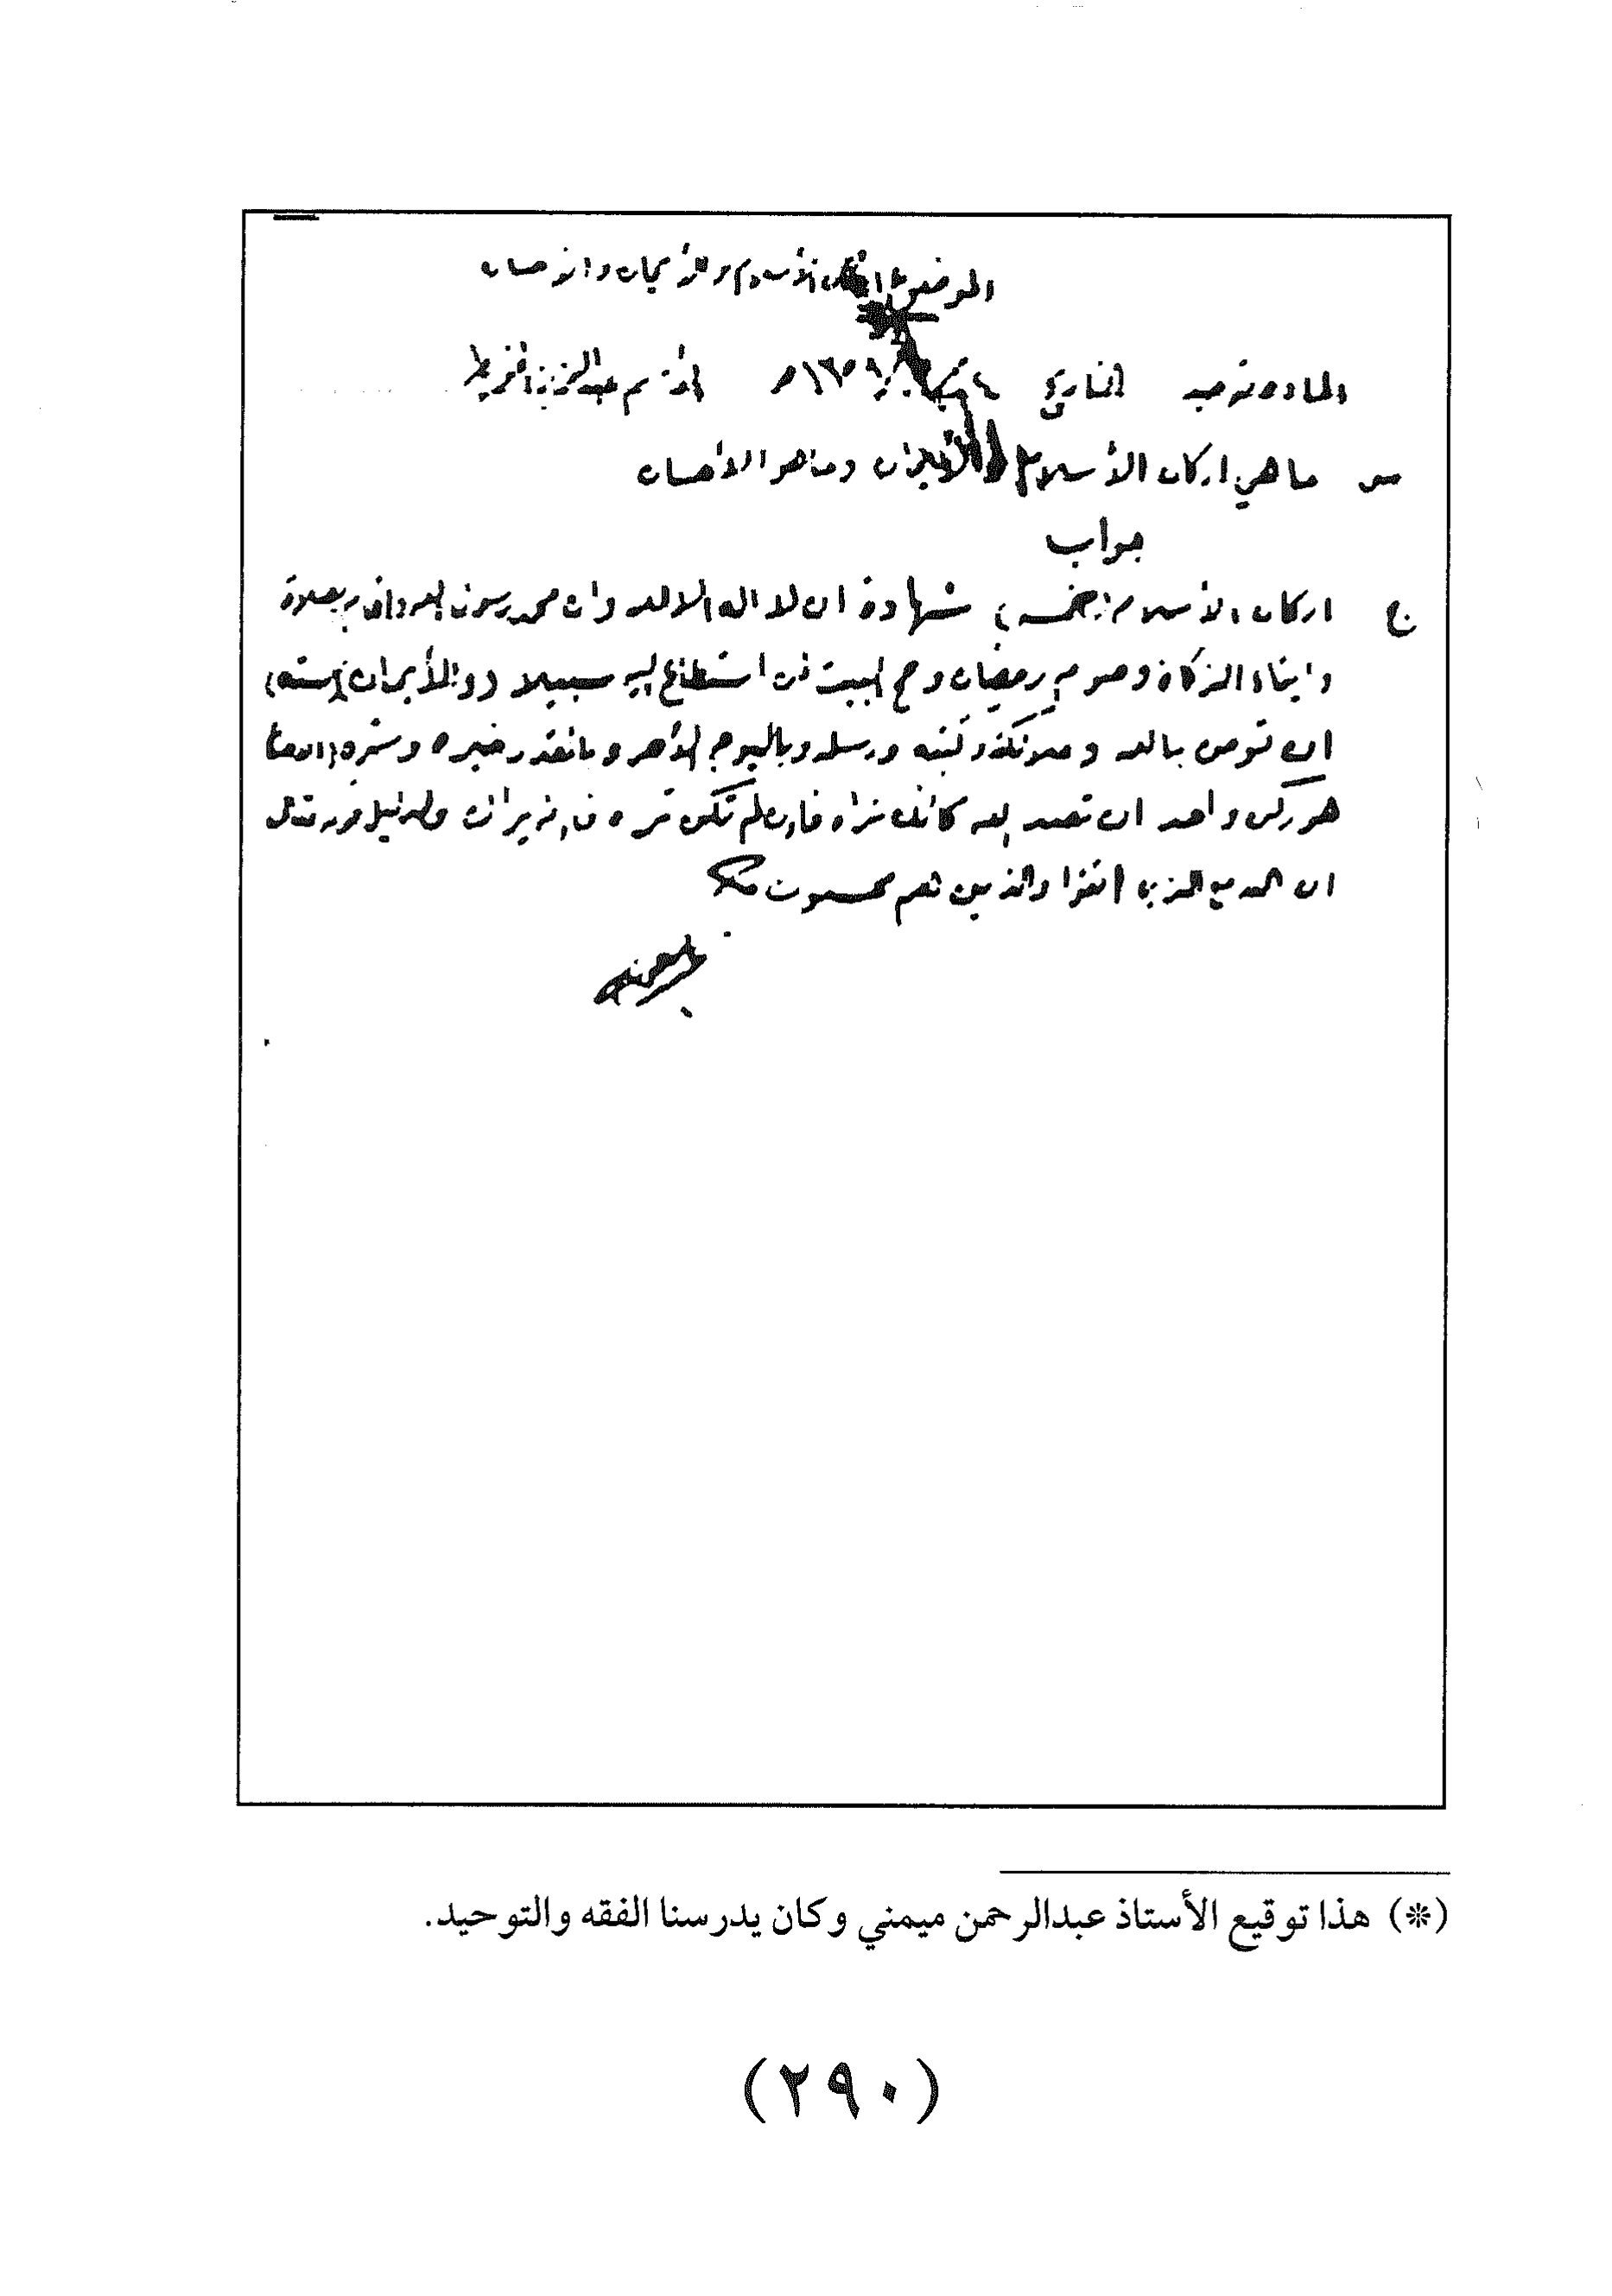 الموضوع الأسلام والأيمان والاحسان
الماده توحيد التاريخ الاسم عبدالعزيز
س ما هي اركان الأسلام والأيمان وما هو الاحسان
جواب
ج اركان الأسلام (خمسه) شهادة ان لا اله الا الله وان محمد رسول الله واقام الصلاة
وايتاء الزكاة وصوم رمضان وحج البيت من استطاع اليه سبيلا (والأيمان) (سته)
ان تومن بالله وملائكته وكتبه ورسله وباليوم الأخر وبالقدر خيره وشره
هو ركن واحد ان تعبد الله كأنك تراه فإن لم تكن تره فإنه يراك والدليل قوله تعالى
ان الله مع الذين اتقوا والذين هم محسنون
(*) هذا توقيع الأستاذ عبدالرحمن ميمني وكان يدرسنا الفقه والتوحيد.
(٢٩٠)